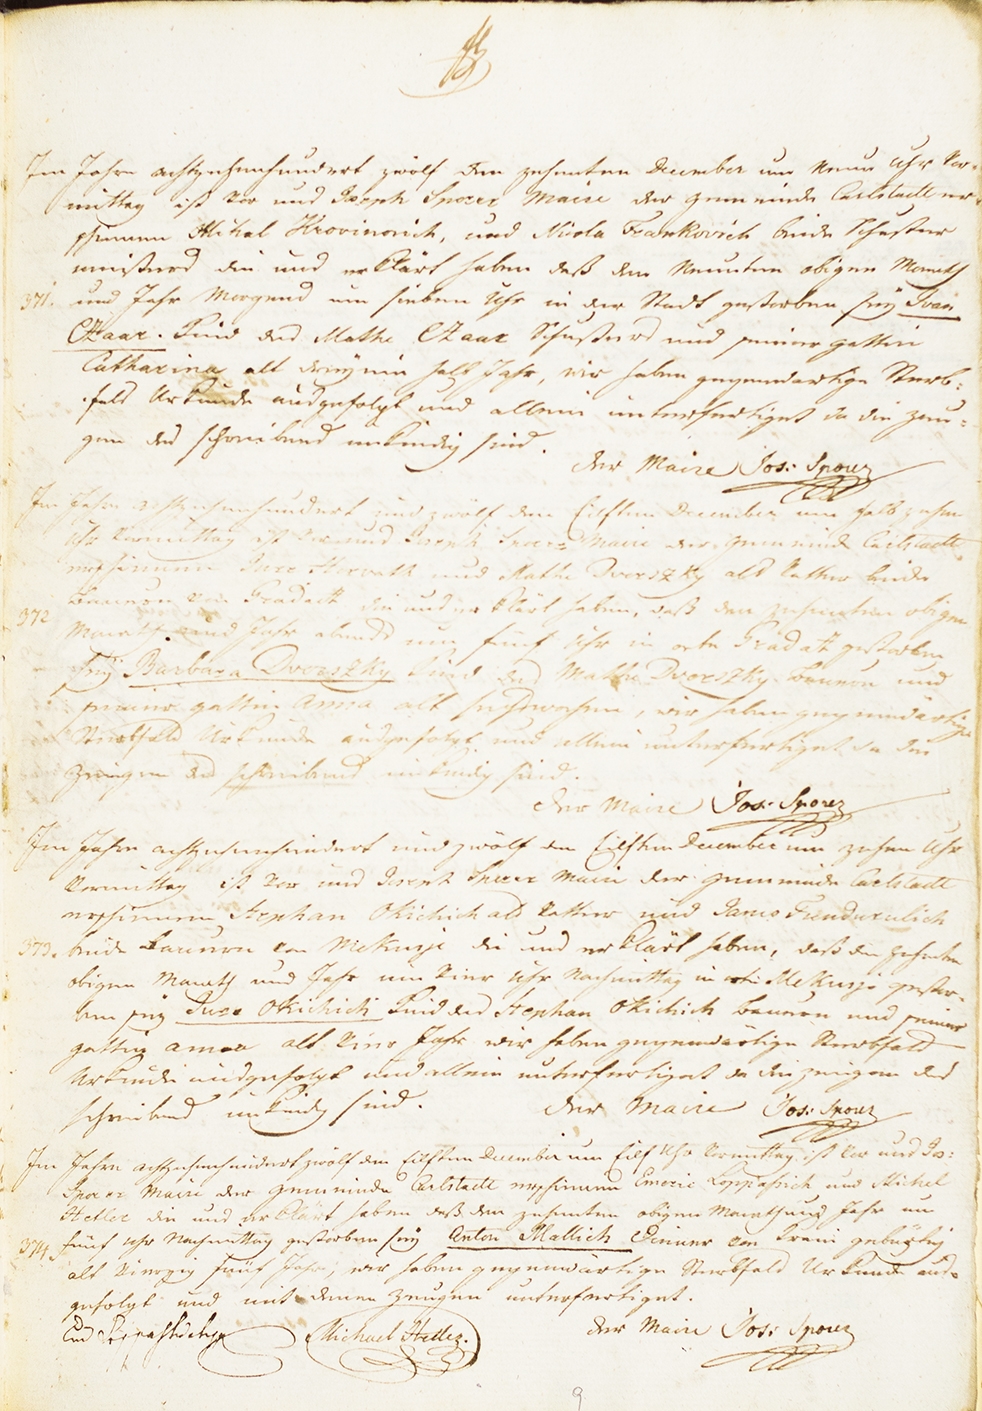 Im Jahre achtzehenhundert zwölf den zehenten December um Neun Uhr Vor-
mittag ist vor uns Joseph Sporer Maire der Gemeinde Carlstadt er-
schienen Mikal Krovinovich, und Nicola Frankovich beide Schuster
meisters die uns erklärt haben daß den Neunten obigen Monaths
371. und Jahr Morgens um sieben Uhr in der Stadt gestorben sey Ivan
Czaar. Kind des Mathe Czaar Schusters und seiner gattin
Catharina alt drey ein halb Jahr, wir haben gegenwärtige Sterb-
falls Urkunde ausgefolgt und allein unterfertiget da die Zeu-
gen des schreibens unkundig sind.
der Maire Jos: Sporer
Im Jahre achtzehenhundert und zwölf den Eilften December um halb zehen
Uhr Vormittag ist vor uns Joseph Sporer Maire der Gemeinde Carlstadt
erschienen Jure Horvath und Mathe Dvorszky als Vatter beide
372 Bauern von Gradatz die uns erklärt haben, daß den zehenten obigen
Monaths und Jahr abends um fünf Uhr in orte Gradatz gestorben
sey Barbara Dvorszky Kind des Mathe Dvorszky Bauern und
seiner gattin Anna alt sechs wochen, wir haben gegenwärtige
Sterbfalls Urkunde ausgefolgt und allein unterfertiget da die
Zeugen des schreibens unkundig sind.
der Maire Jos: Sporer
Im Jahre achtzehenhundert und zwölf den Eilften December um zehen Uhr
Vormittag ist vor uns Joseph Sporer Maire der Gemeinde Carlstadt
erschienen Stephan Okichich als Vatter und Janko Fundurulich
373. beide Bauern von Mekusje die uns erklärt haben, daß den zehenten
obigen Monaths und Jahr um Vier Uhr Nachmittag in orte Mekusje gestor-
ben sey Jure Okichich Kind des Stephan Okichich Bauern und seiner
gattin Anna alt Vier Jahr wir haben gegenwärtige Sterbfalls
Urkunde ausgefolgt und allein unterfertiget da die zeugen des
schreibens unkundig sind. der Maire Jos: Sporer
Im Jahre achtzehenhundert zwölf den Eilften December um Eilf Uhr Vormittag ist vor uns Jos:
Sporer Maire der Gemeinde Carlstadt erschienen Emeric und Michel
Hetler die uns erklärt haben daß den zehenten obigen Monaths und Jahr um
374. fünf Uhr Nachmittag gestorben sey Anton Mallich Diener von Krain gebürtig
alt Vierzig fünf Jahr, wir haben gegenwärtige Sterbfalls Urkunde aus-
gefolgt und mit denen Zeugen unterfertiget.
Michael Hetler. der Maire Jos: Sporer
9